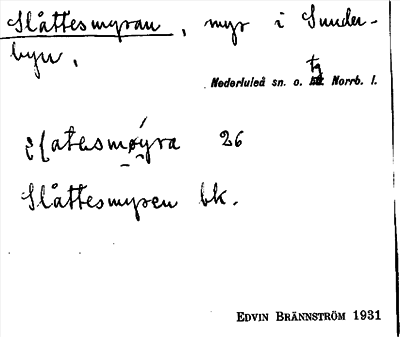 Slåttesmyran, myr i Sunder-
byn.
Nederluleå sn. o. tg Norrb. l.
26
Slåttesmyren bk.
EDVIN BRÄNNSTRÖM 1931